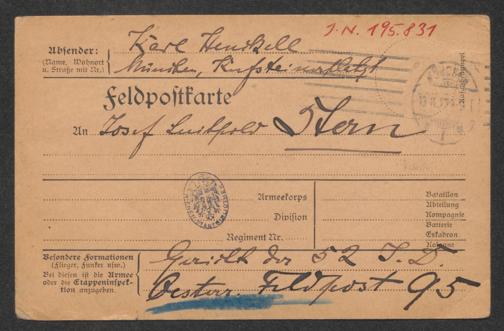 J.N. 195.831
Absender:
(Name, Wohnort
u. Straße mit Nr.)
Karl Henckell
München,
Feldpostkarte
An Josef Luitpold Stern
Armeekorps
Division
Regiment Nr.
Bataillon
Abteilung
Kompagnie
Batterie
Eskadron
Kolonne
Besondere Formationen
(Flieger, Funker usw.)
Bei diesen ist die Armee
oder die Etappeninspek-
tion anzugeben.
Gericht der 52 I. D.
Oesterr. Feldpost 95